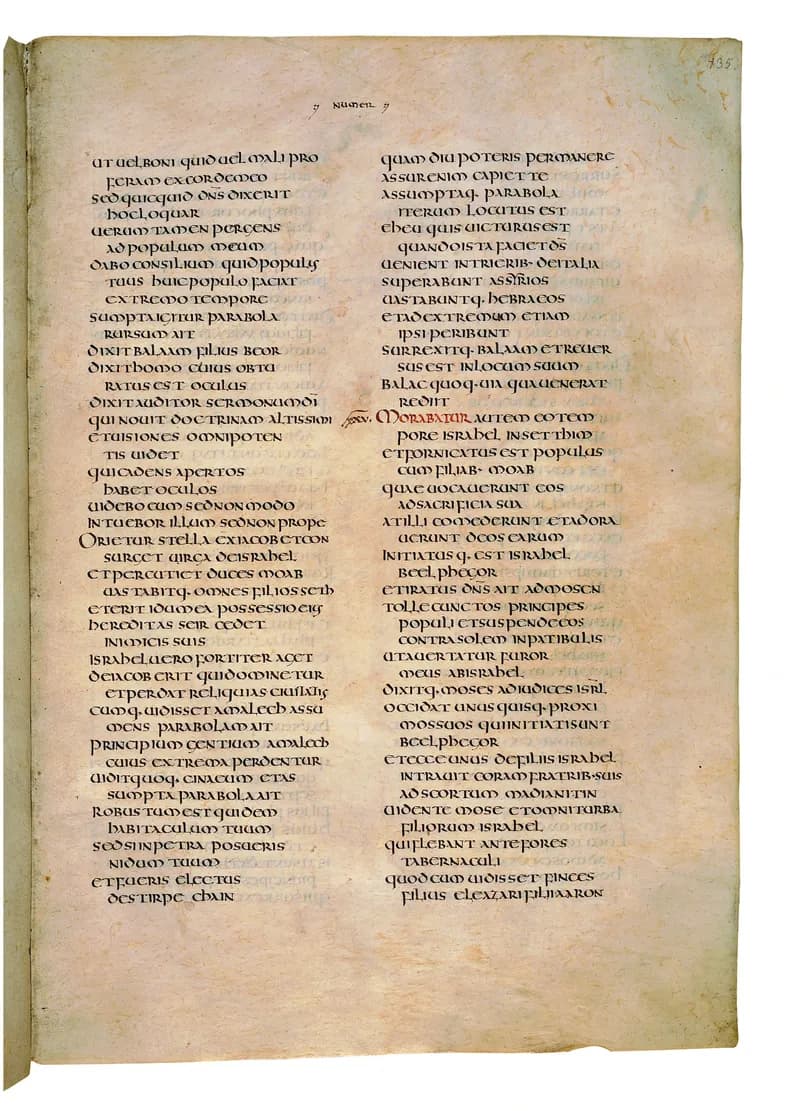 135.
NUMER
UT UEL BONI QUID UEL MALI PRO
FERAM EX CORDE MEO
SED QUICQUID DNS DIXERIT
HOC LOQUAR
UERUM TAMEN PERGENS
AD POPULUM MEUM
DABO CONSILIUM QUID POPULUS
TUUS HUIC POPULO FACIAT
EXTREMO TEMPORE
SUMPTA IGITUR PARABOLA
RURSUM AIT
DIXIT BALAAM FILIUS BEOR
DIXIT HOMO CUIUS OBTU
RATUS EST OCULUS
DIXIT AUDITOR SERMONUM DI
QUI NOUIT DOCTRINAM ALTISSIMI
ET UISIONES OMNIPOTEN
TIS UIDET
QUI CADENS APERTOS
HABET OCULOS
UIDEBO EUM SED NON MODO
INTUEBOR ILLUM SED NON PROPE
ORIETUR STELLA EX IACOB ET CON
SURGET UIRGA DE ISRAHEL
ET PERCUTIET DUCES MOAB
UASTABITQ· OMNES FILIOS SETH
ET ERIT IDUMEA POSSESSIO EIUS
HEREDITAS SEIR CEDET
INIMICIS SUIS
ISRAHEL UERO FORTITER AGET
DE IACOB ERIT QUI DOMINETUR
ET PERDAT RELIQUIAS CIUITATIS
CUMQ· UIDISSET AMALECH ASSU
MENS PARABOLAM AIT
PRINCIPIUM GENTIUM AMALECH
CUIUS EXTREMA PERDENTUR
UIDIT QUOQ· CINAEUM ET AS
SUMPTA PARABOLA AIT
ROBUSTUM EST QUIDEM
HABITACULUM TUUM
SED SI IN PETRA POSUERIS
NIDUM TUUM
ET FUERIS ELECTUS
DE STIRPE CHAIN
QUAM DIU POTERIS PERMANERE
ASSUR ENIM CAPIET TE
ASSUMPTAQ· PARABOLA
ITERUM LOCUTUS EST
EHEU QUIS UICTURUS EST
QUANDO ISTA FACIET DS
UENIENT IN TRIERIB· DE ITALIA
SUPERABUNT ASSYRIOS
UASTABUNTQ· HEBRAEOS
ET AD EXTREMUM ETIAM
IPSI PERIBUNT
SURREXITQ· BALAAM ET REUER
SUS EST IN LOCUM SUUM
BALAC QUOQ· UIA QUA UENERAT
REDIIT
MORABATUR AUTEM EO TEM
PORE ISRAHEL IN SETTHIM
ET FORNICATUS EST POPULUS
CUM FILIAB· MOAB
QUAE UOCAUERUNT EOS
AD SACRIFICIA SUA
AT ILLI COMEDERUNT ET ADORA
UERUNT DEOS EARUM
INITIATUSQ· EST ISRAHEL
BEELPHEGOR
ET IRATUS DNS AIT AD MOSEN
TOLLE CUNCTOS PRINCIPES
POPULI ET SUSPENDE EOS
CONTRA SOLEM IN PATIBULIS
UT AUERTATUR FUROR
MEUS AB ISRAHEL
DIXITQ· MOSES AD IUDICES ISRL
OCCIDAT UNUSQUISQ· PROXI
MOS SUOS QUI INITIATI SUNT
BEELPHEGOR
ET ECCE UNUS DE FILIIS ISRAHEL
INTRAUIT CORAM FRATRIB· SUIS
AD SCORTUM MADIANITIN
UIDENTE MOSE ET OMNI TURBA
FILIORUM ISRAHEL
QUI FLEBANT ANTE FORES
TABERNACULI
QUOD CUM UIDISSET FINEES
FILIUS ELEAZARI FILII AARON